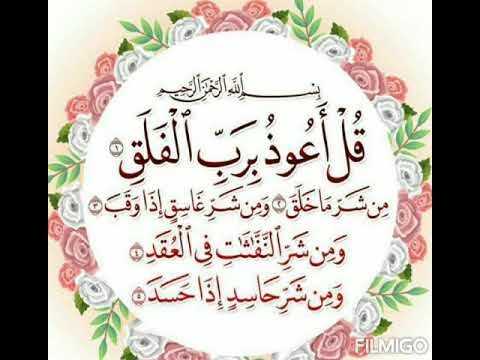 بِسْمِ ٱللَّهِ ٱلرَّحْمَٰنِ ٱلرَّحِيمِ
قُلْ أَعُوذُ بِرَبِّ ٱلْفَلَقِ ١
مِن شَرِّ مَا خَلَقَ ٢ وَمِن شَرِّ غَاسِقٍ إِذَا وَقَبَ ٣
وَمِن شَرِّ ٱلنَّفَّٰثَٰتِ فِى ٱلْعُقَدِ ٤
وَمِن شَرِّ حَاسِدٍ إِذَا حَسَدَ ٥
FILMIGO